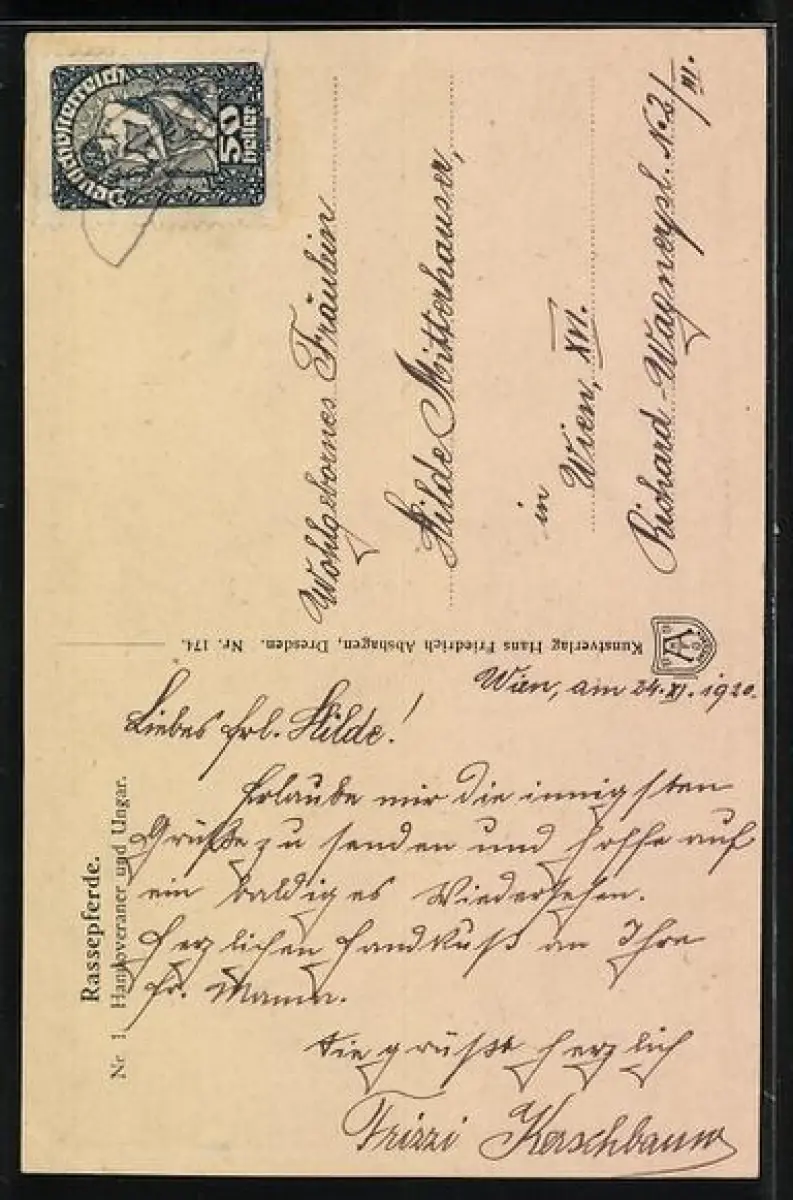 Deutschösterreich
50
Heller
Wohlgebornes Fräulein
Hilde Mitterhauser,
in
Wien, XVI.
Richard-Wagnerpl. No 2/III.
Kunstverlag Hans Friedrich Abshagen, Dresden. Nr. 174.
Rassepferde.
Nr. 1 Hannoveraner und Ungar.
Wien, am 24. XI. 1920.
Liebes Frl. Hilde!
Erlaube mir die innigsten
Grüße zu senden und hoffe auf
ein baldiges Wiedersehen.
Herzlichen Handkuß an Ihre
Fr. Mama.
Sie grüßt herzlich
Frizzi Kerschbaum